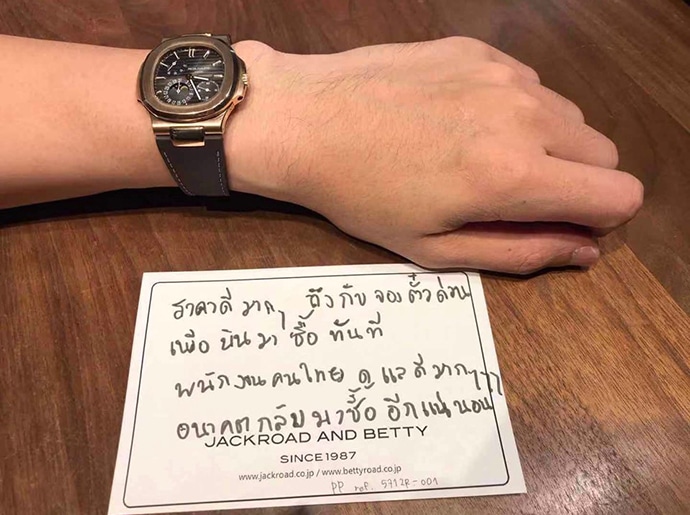 ราคาดีมากๆ ถึงกับจองตั๋วด่วน
เพื่อบินมาซื้อทันที
พนักงานคนไทย ดูแลดีมากๆๆๆ
อนาคตกลับมาซื้ออีกแน่นอน
JACKROAD AND BETTY
SINCE1987
www.jackroad.co.jp / www.bettyroad.co.jp
PP ref. 5712R-001